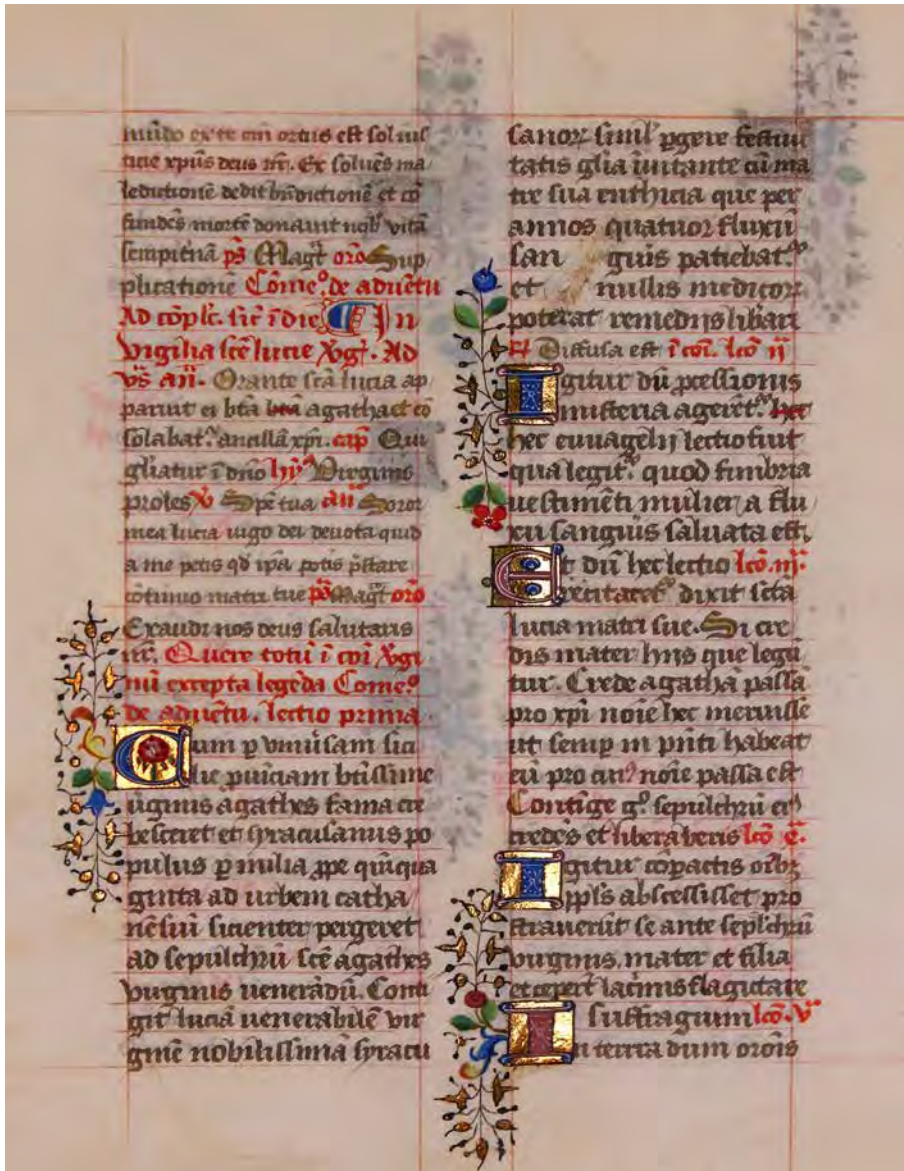 mūdo ex te em̄ ortus est sol ius
ticie xp̄us deus nr̄. Ex soluēs ma
ledictionē dedit bn̄dictionē et cō
fundēs mortē donauit nob̄ vitā
sempit̄nā ps̄ Magt̄ orō Sup
plicatione Cōmeo. de aduētu
Ad cōplc̄. sic̄ ī die In
vigilia scē lucie v̄gī. Ad
vs̄ aīi. Orante scā lucia ap
paruit ei bt̄a beā agatha et cō
solabat. ancillā xp̄i. cap̄ Qui
gl̄iatur ī dn̄o hy Virginis
proles v̄ Spē tua aīi Soror
mea lucia uigo dei deuota quid
a me petis qd̄ ip̄a potis p̄stare
cōtinuo matri tue ps̄ Magt̄ orō
Exaudi nos deus salutaris
nr̄. Quere totū ī cōi v̄gi
nū excepta legēda Comeo.
de aduētu. lectio prima
Cum p vniūsam sici
lie puīciam btīssime
uiginis agathes fama cre
besceret et syracusanus po
pulus p milia ꝓpe quīqua
ginta ad urbem catha
nēsiū sicienter pergeret
ad sepulchrū scē agathes
virginis uenerādū. Conti
git luciā uenerabilē vir
ginē nobilissimā syracu
sanoꝝ simil̄ pgere festiui
tatis gl̄ia īuitante cū ma
tre sua euthicia que per
annos quatuor fluxū
san guis patiebat.
et nullis medicoꝝ
poterat remedijs lib̄ari
Diffusa est ī cōi. lcō ij
Igitur dū ꝓcessionis
misteria agerēt. hec
hec euuagelij lectio fiuit
qua legit. quod fimbria
uestimēti mulier a flu
xu sanguīs saluata est,
Et dū hec lectio lcō. iij.
recitaret dixit scā
lucia matri sue. Si cre
dis mater hijs que legū
tur. Crede agathā passā
pro xp̄i noīe hec meruisse
ut semp in pn̄ti habeat
eū pro cui9 noīe passa est
Contīge go sepulchrū ei9
credēs et libera beris lcō
Igitur cōpactis oībꝫ
pplīs abscessisset pro
strauerūt se ante sepl̄chrū
virginis, mater et filia
et cepert̄ lac̄imis flagitare
suffragium lcō. v
In terrea dum orōis